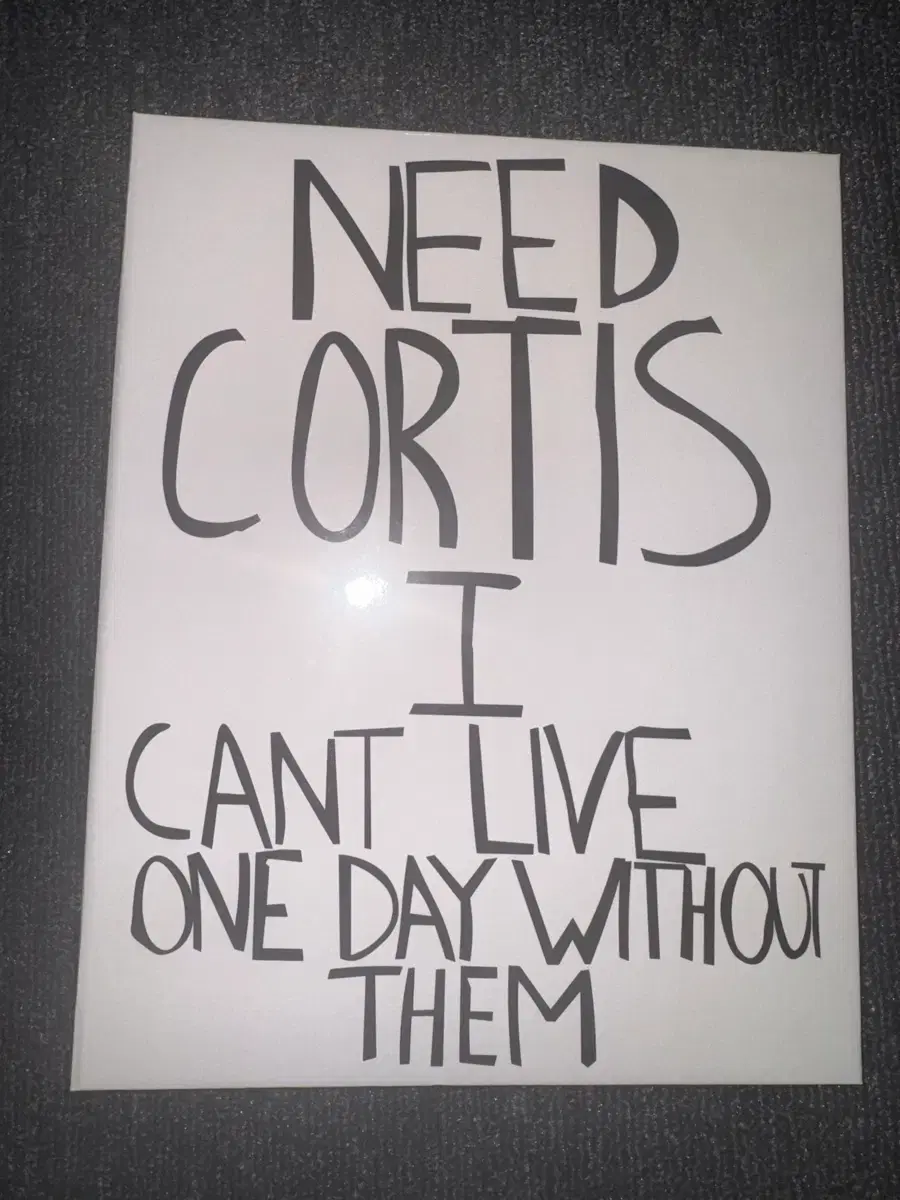 NEED
CORTIS
I
CANT LIVE
ONE DAY WITHOUT
THEM